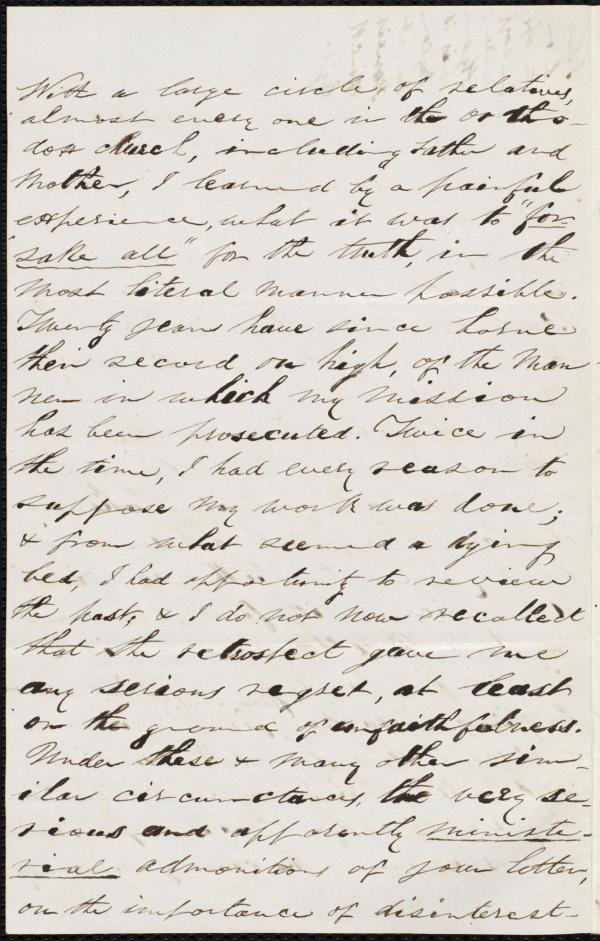 With a large circle of relatives,
almost every one in the ortho-
dox church, including Father and
Mother, I learned by a painful
experience, what it was to "for-
sake all" for the truth, in the
most literal manner possible.
Twenty years have since borne
their record on high, of the man-
ner in which my mission
has been prosecuted. Twice in
the time, I had every reason to
suppose my work was done;
& from what seemed a dying
bed, I had opportunity to review
the past; & I do not now recollect
that the retrospect gave me
any serious regret, at least
on the ground of unfaithfulness.
Under these & many other sim-
ilar circumstances, the very se-
rious and apparently ministe-
rial admonitions of your letter,
on the importance of disinterest-